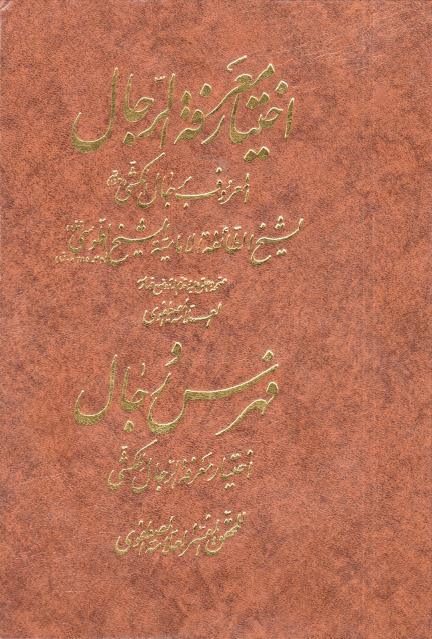 اختيار معرفة الرجال
المعروف برجال الكشي
لشيخ الطائفة الامامية الشيخ الطوسي
العلامة المصطفوي
فهرس و رجال
اختيار معرفة الرجال الكشي
للمحقق المفسر العلامة المصطفوي